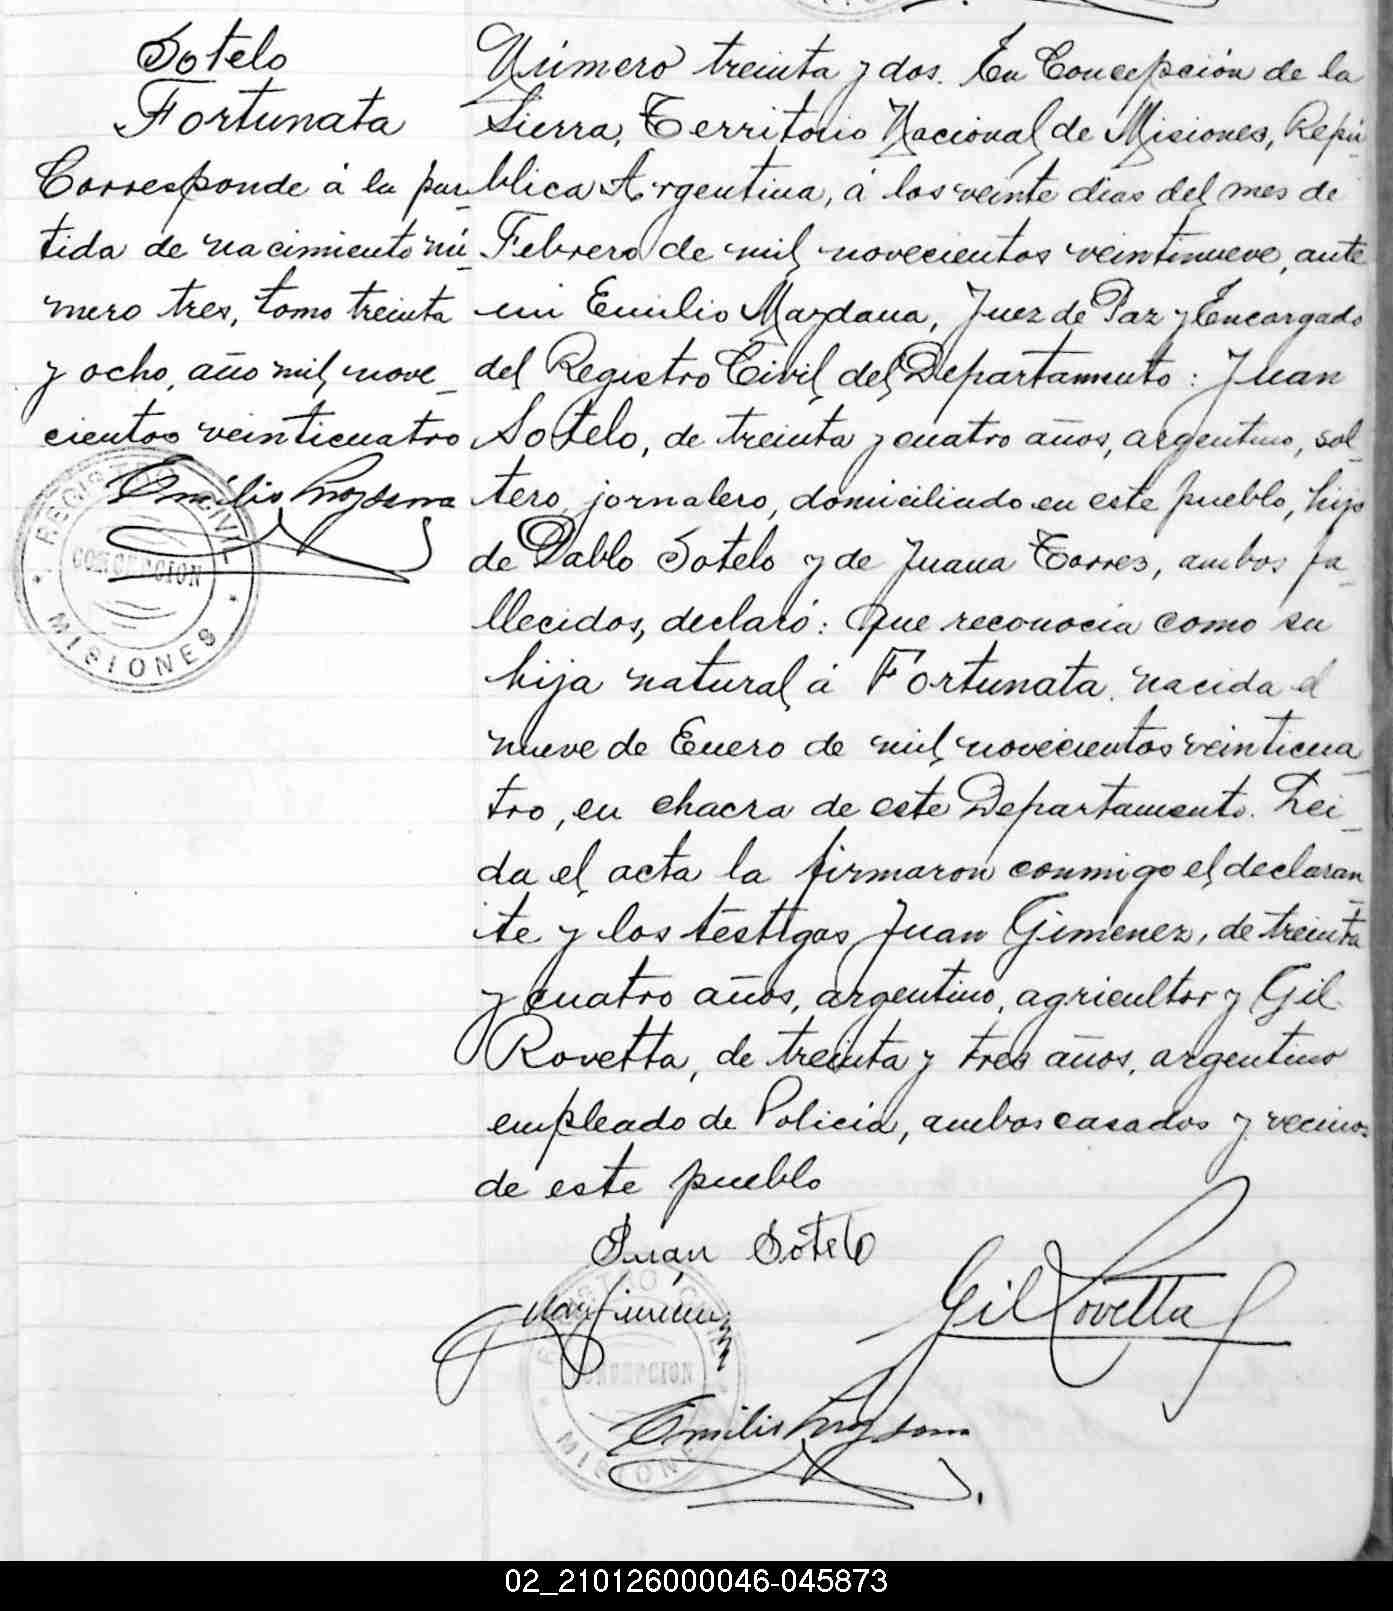 Sotelo
Fortunata
Corresponde á la par_
tida de nacimiento nú_
mero tres, tomo treinta
y ocho, año mil nove_
cientos veinticuatro
Emilio Mazdana
REGISTRO CIVIL
CONCEPCION
* MISIONES *
Número treinta y dos. En Concepción de la
Sierra, Territorio Nacional de Misiones, Repú_
blica Argentina, á los veinte dias del mes de
Febrero de mil novecientos veintinueve, ante
mi Emilio Mazdana, Juez de Paz y Encargado
del Registro Civil del Departamento: Juan
Sotelo, de treinta y cuatro años, argentino, sol_
tero, jornalero, domiciliado en este pueblo, hijo
de Pablo Sotelo y de Juana Torres, ambos fa_
llecidos, declaró: Que reconocia como su
hija natural á Fortunata, nacida el
nueve de Enero de mil novecientos veinticua_
tro, en chacra de este Departamento. Lei_
da el acta la firmaron conmigo el declaran_
te y los testigos Juan Gimenez, de treinta
y cuatro años, argentino, agricultor y Gil
Rovetta, de treinta y tres años, argentino
empleado de Policia, ambos casados y vecinos
de este pueblo
Juan Sotelo
Juan Gimenez
Gil Rovetta
REGISTRO CIVIL
CONCEPCION
MISIONES
Emilio Mazdana
02_210126000046-045873